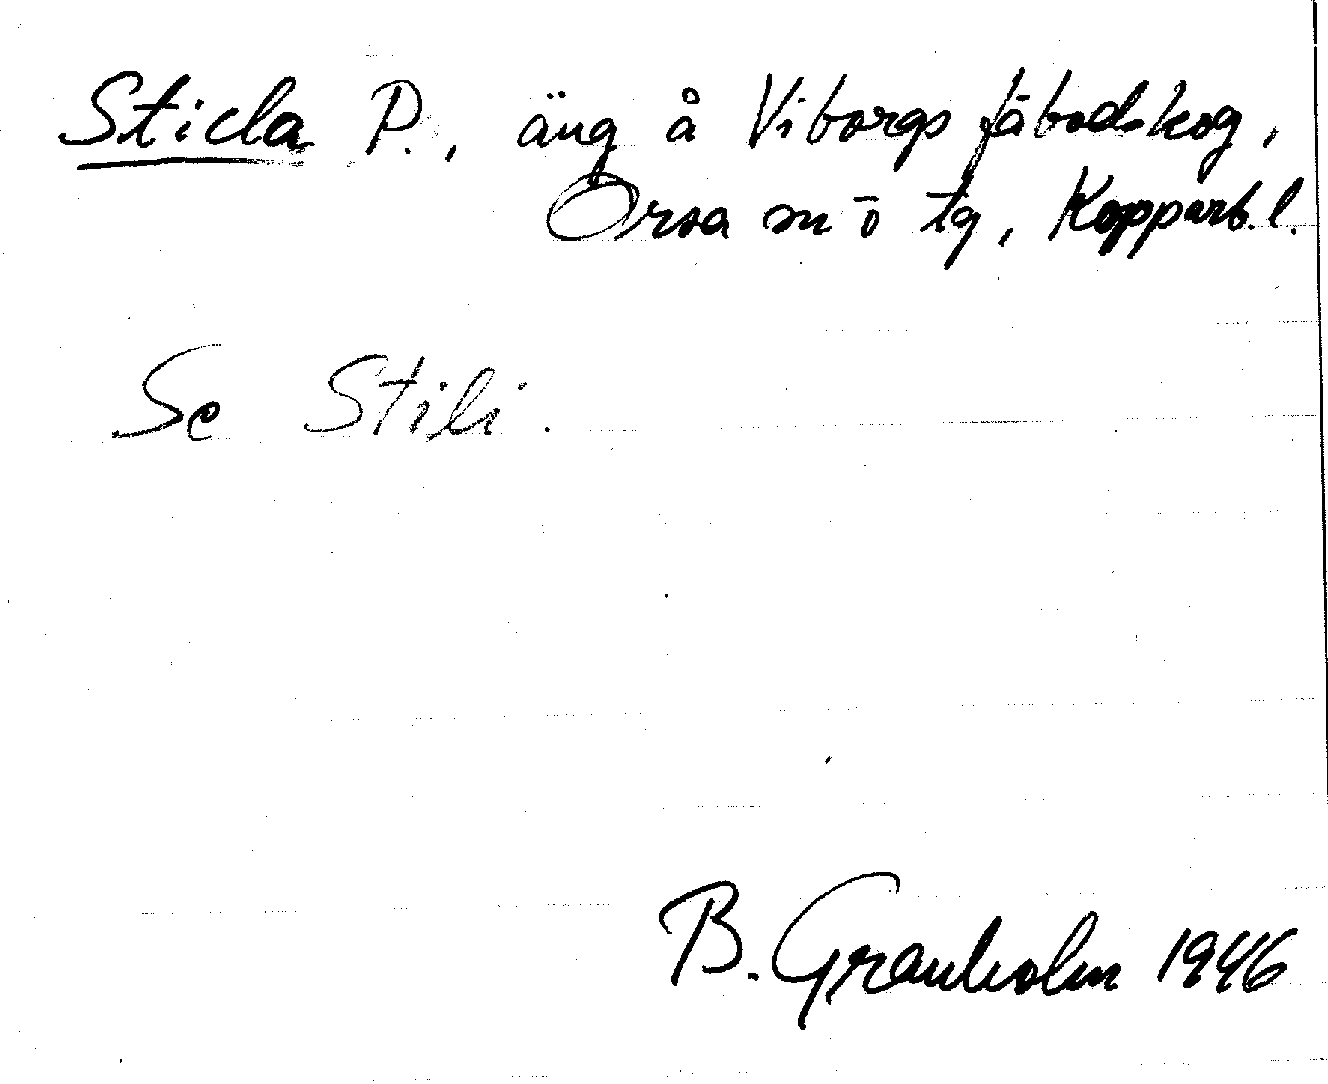 Sticla P., äng å Viborgs fäbodskog,
Orsa sn o tg, Kopparb. l.
Se Stili.
B. Granholm 1946